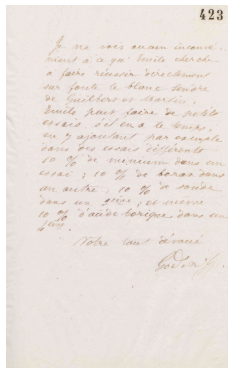 423
Je ne vois aucun inconvé-
nient à ce qu'Emile cherche
à faire réussir directement
sur fonte le blanc tendre
de Guilbert et Martin.
Emile peut faire de petits
essais, s'il en a le temps,
en y ajoutant par exemple
dans des essais différents
10 % de minium dans un
essai ; 10 % de borax dans
un autre ; 10 % de soude
dans un 3eme, et même
10 % d'acide borique dans un
4eme.
Votre tout dévoué
Godin